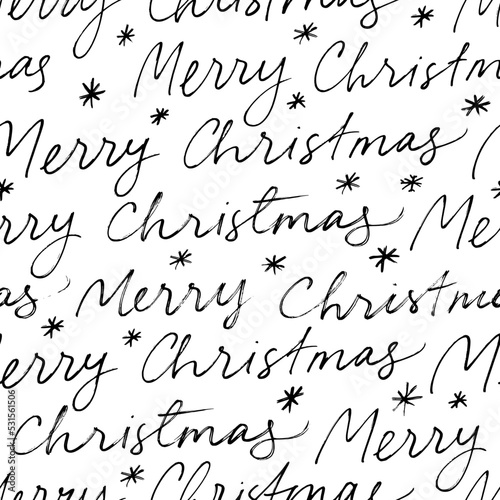 erry Christmas M
as Merry Christm
Merry Christmas
rry Christmas Me
as Merry Christma
erry Christmas M
Christmas Merry
erry Christmas M
Adobe Stock | #531561506